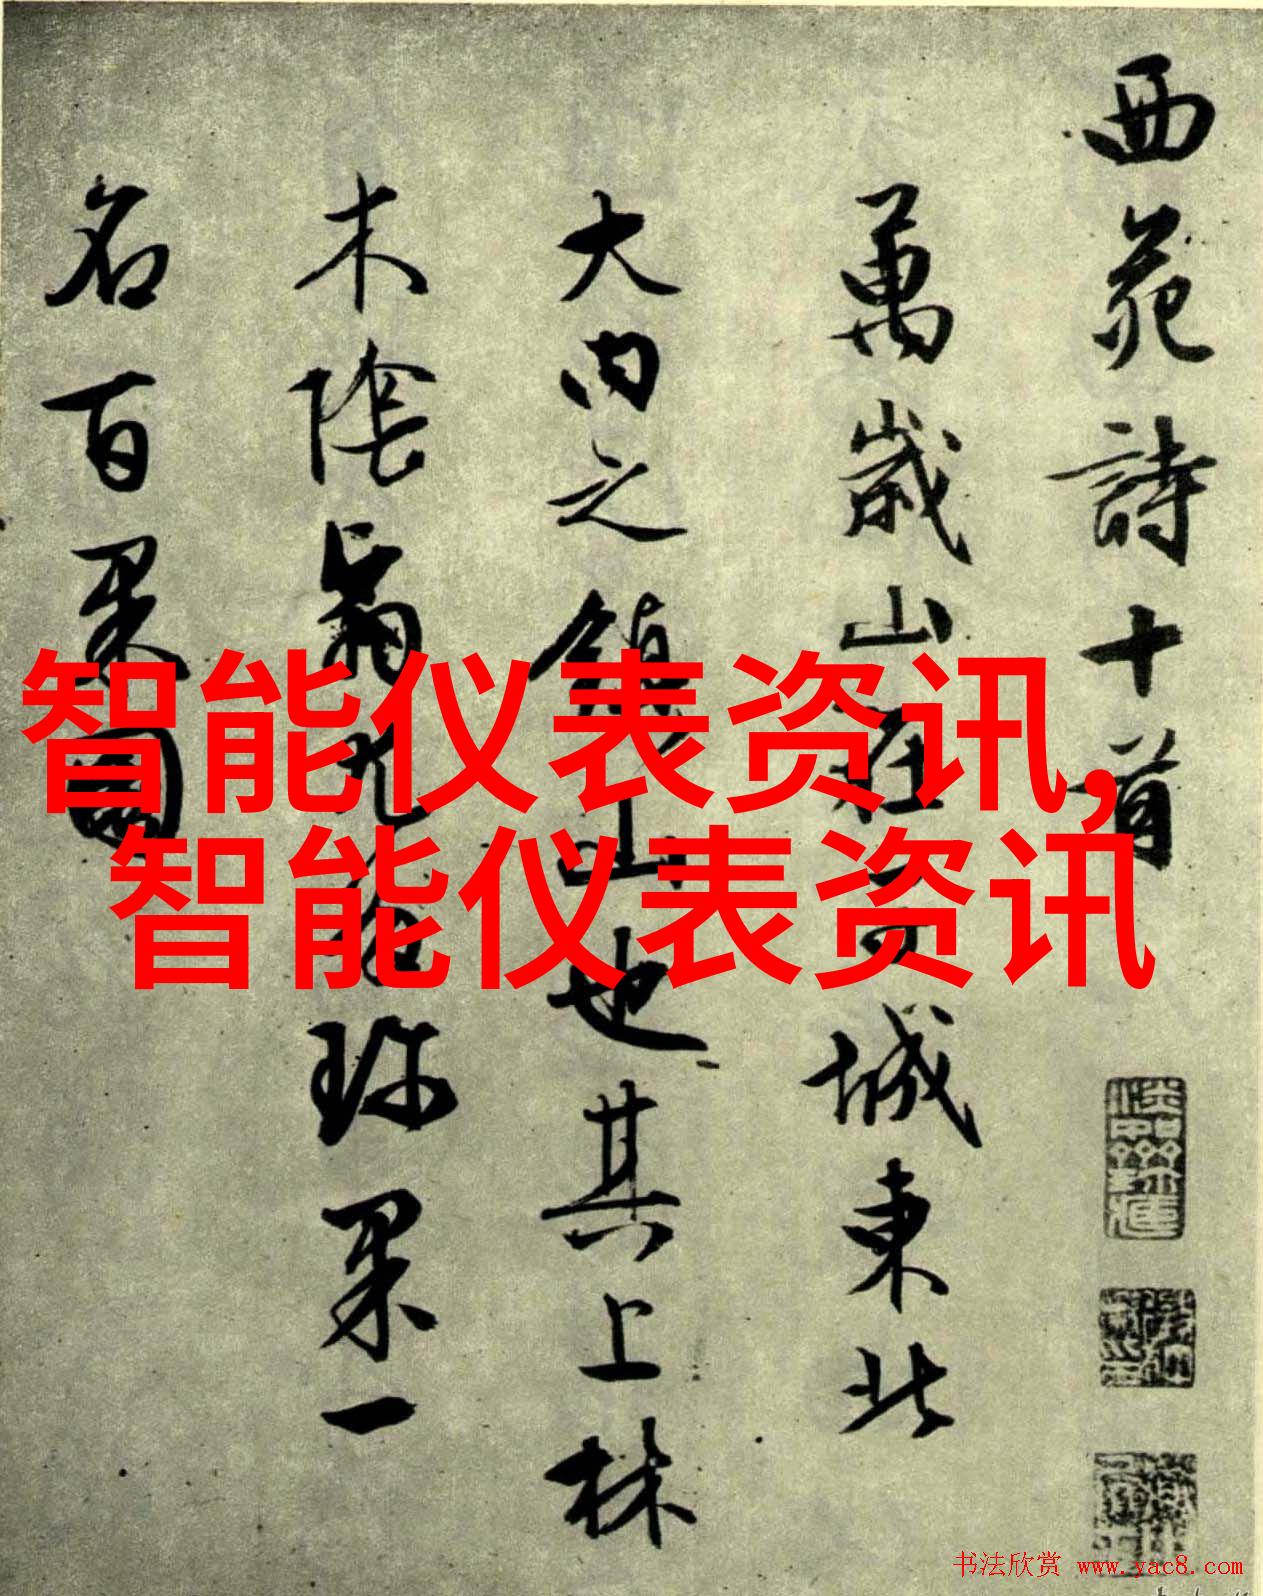 西苑詩十首
萬歲山在子城東北
大内之鎮山也其上林
木陰翳尤多珍果一
名百果園
智能仪表资讯,
智能仪表资讯
书法欣赏 www.yac8.com